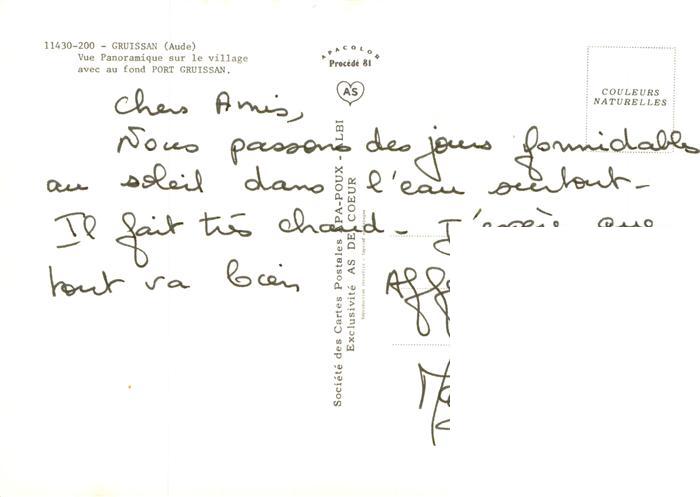 11430-200 - GRUISSAN (Aude)
Vue Panoramique sur le village
avec au fond PORT GRUISSAN.
APACOLOR
Procédé 81
AS
COULEURS
NATURELLES
Société des Cartes Postales APA-POUX - ALBI
Exclusivité AS DE COEUR
Chers Amis,
Nous passons des jours formidables
au soleil dans l'eau surtout -
Il fait très chaud -
tout va bien